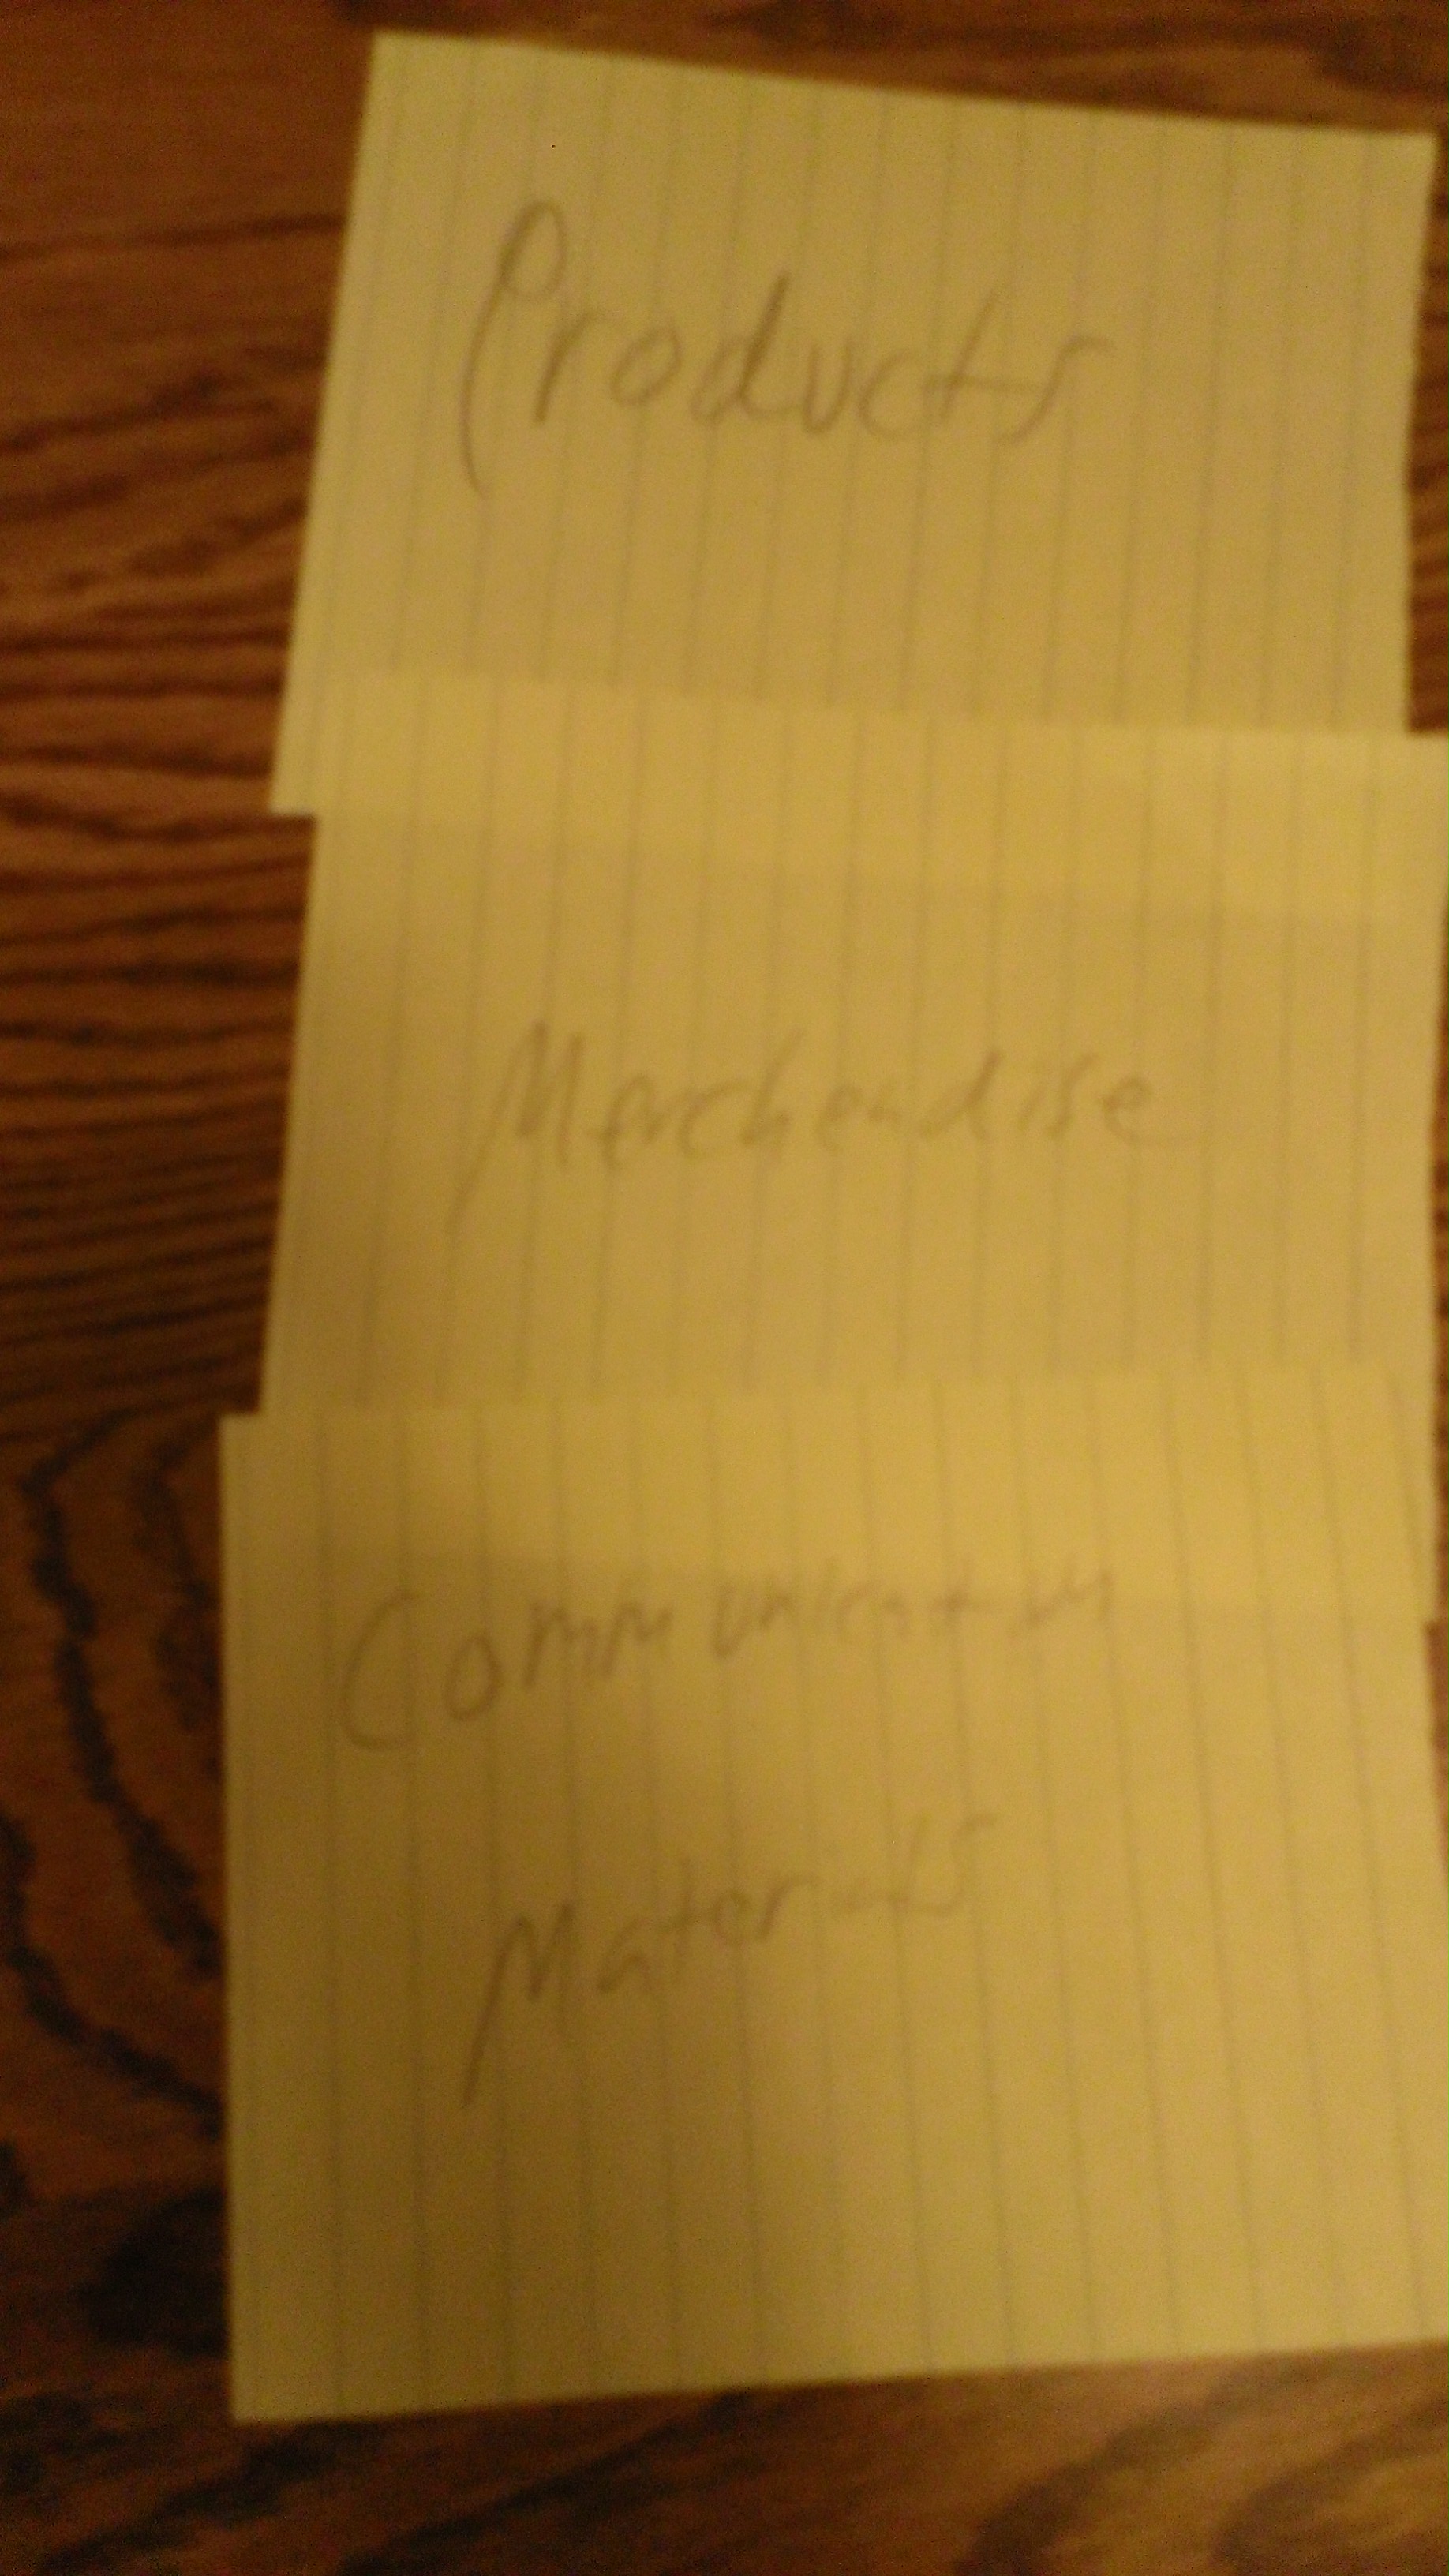 Products
Merchendise
Communication
Materials